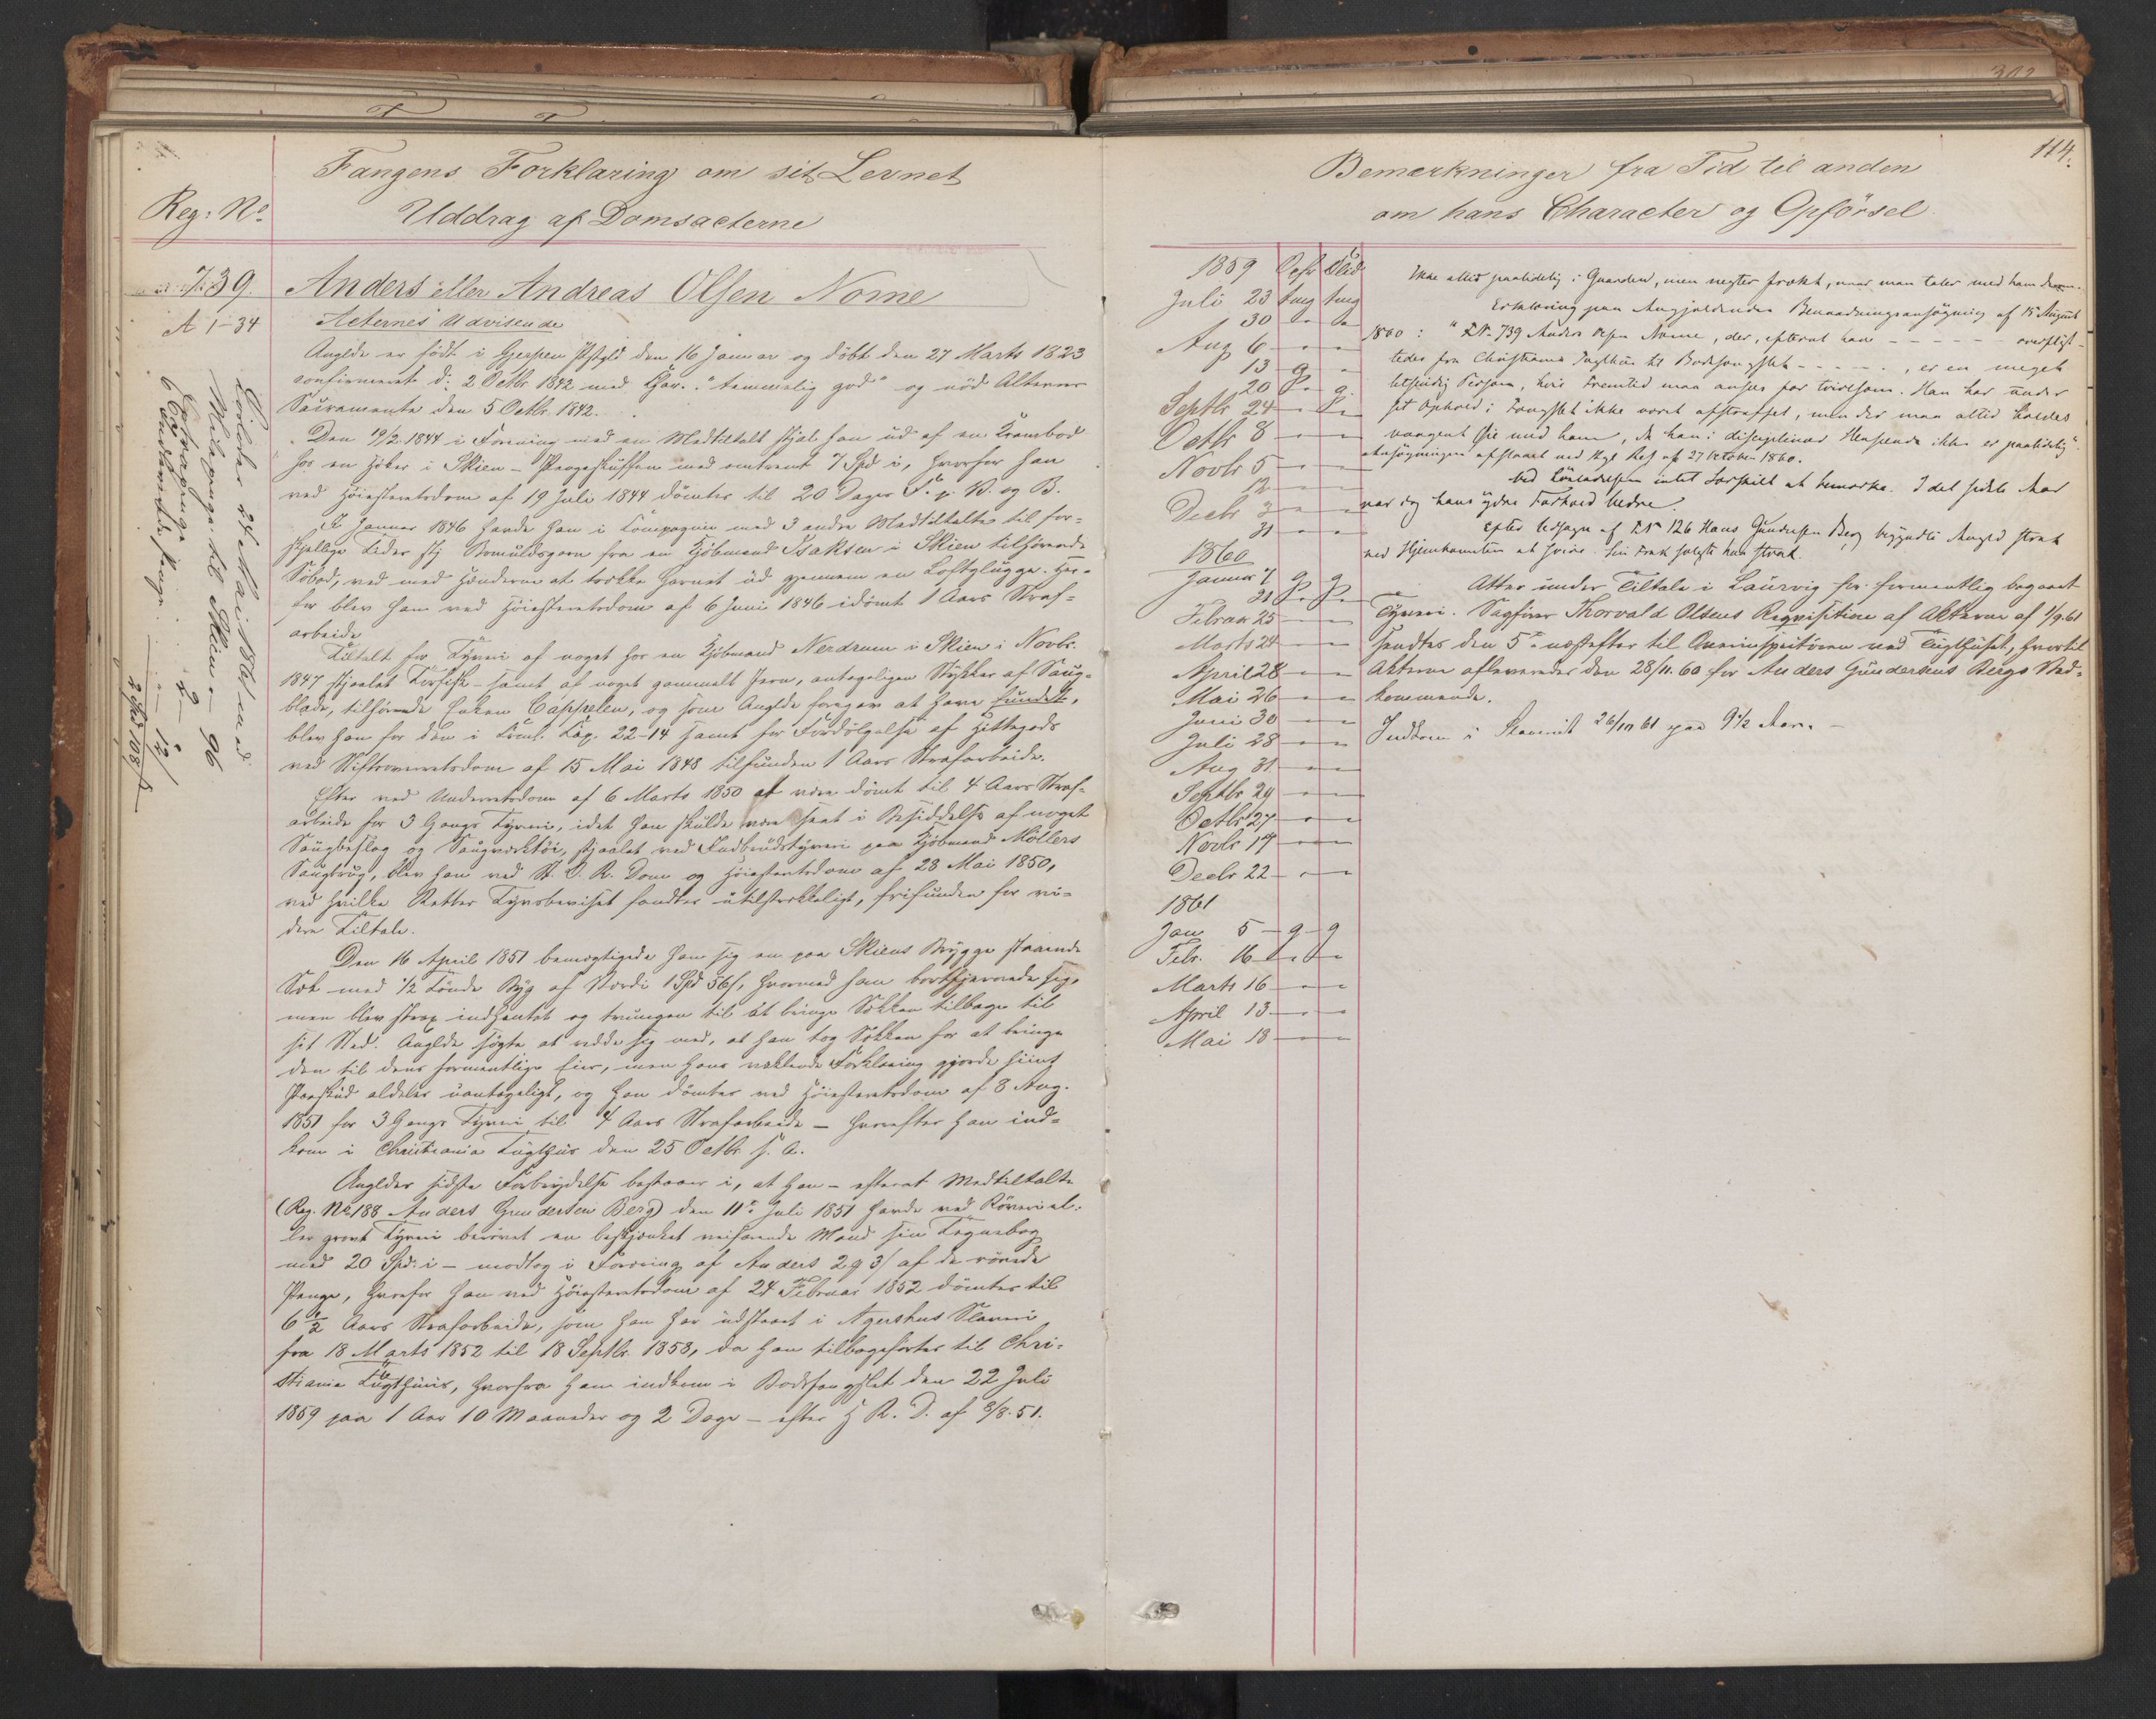 Fangens Forklaring om sit Levnet
Reg: No
Uddrag af Domsacterne
739. Anders eller Andreas Olsen Nome
A 1-34 Acternes Udvisende
Anglde er født i Gjerpen Pstgld den 16 Januar og döbt den 27 Marts 1823
confirmeret d: 2 Octbr 1842 med Kar. "temmelig god" og nöd Alterens
Sacramente den 5 Octbr. 1842.
Den 19/2 1844 i Forening med en Medtiltalt stjal han ud af en Krambod
hos en Höker i Skien - Pengeskuffen med omtrent 7 Spd i, hvorfor han
ved Höiesteretsdom af 19 Juli 1844 dömtes til 20 Dages F. p. V. og B.
I Januar 1846 havde han i Compagnie med 3 andre Medtiltalte til for-
skjellige Tider stj Bomuldsgarn fra en Kjöbmand Isaksen i Skien tilhörende
Söbod, ved med Hænderne at trække Garnet ud gjennem en Loftglugge. Her-
for blev han ved Höiesteretsdom af 6 Juni 1846 idömt 1 Aars Straf-
arbeide
Tiltalt for Tyveri af noget hos en Kjöbmand Nerdrum i Skien i Novbr.
1847 stjaalet Törfisk - samt af noget gammelt Jern, antageligen Stykker af Saug-
blade, tilhörende Cappelen, og som Anglde foregav at have fundet,
blev han for den i Crml. Kap. 22-14 samt for Fordölgelse af Hittegods
ved Stiftsoverretsdom af 15 Mai 1848 tilfunden 1 Aars Strafarbeide.
Efter ved Underretsdom af 6 Marts 1850 at være dömt til 4 Aars Straf-
arbeide for 3 Gangs Tyveri, idet han skulde være seet i Besiddelse af noget
Saugbeslag og Saugværktöi, stjaalet ved Indbrudstyveri paa Kjöbmand Möllers
Saugbrug, blev han ved St. O. R. Dom og Höiesteretsdom af 28 Mai 1850,
ved hvilke Retter Tyvsbeviset fandtes utilstrækkeligt, frifunden for vi-
dere Tiltale.
Den 16 April 1851 bemægtigede han sig en paa Skiens Brygge staaende
Sæk med 1/2 Tönde Byg af Værdi 1 Spd 56 s, hvormed han bortfjernede sig,
men blev strax indhentet og tvungen til at bringe Sækken tilbage til
sit Sted. Anglde sögte at redde sig med, at han tog Sækken for at bringe
den til dens formentlige Eier, men hans vaklende Forklaring gjorde hiint
Paaskud aldeles uantageligt, og han dömtes ved Höiesteretsdom af 8 Aug.
1851 for 3 Gangs Tyveri til 4 Aars Strafarbeide - hvorefter han ind-
kom i Christiania Tugthus den 25 Octbr s. A.
Angldes sidste Forbrydelse bestaaer i, at han - efterat Medtiltalte
(Reg. No 188 Anders Gundersen Berg) den 11te Juli 1851 havde ved Röveri el-
ler grovt Tyveri berövet en beskjænket veifarende Mand sin Tegnebog
med 20 Spd: i - modtog i Foræring af Anders 2 3/ af de rövede
Penge, hvorfor han ved Höiesteretsdom af 24 Februar 1852 dömtes til
6 1/2 Aars Strafarbeide, som han har udstaaet i Agershus Slaveri
fra 18 Marts 1852 til 18 Septbr. 1858, da han tilbageførtes til Chri-
stiania Tugthuus, hvorfra han indkom i Bodsfængslet den 22 Juli
1859 paa 1 Aar 10 Maaneder og 2 Dage - efter H R. D. af 8/8.51.
Löslades 24 Mai 1861 med
Reisepenge til Skien - 96
Extrapenge 2 -
Indleverede Penge - - 12
2 Spd 108 s
114.
Bemærkninger fra Tid til anden
om hans Character og Opförsel
1859 Opf. Flid
Juli 23 tmg tmg
30 - -
Aug 6 - -
13 g -
20 g
Septbr 24 - -
Octbr 8 - -
Novbr 5 - -
12 - -
Decbr 3 - -
31 - -
1860
Januar 7 g g
21 - -
Februar 25 - -
Marts 24 - -
April 28 - -
Mai 26 - -
Juni 30 - -
Juli 28 - -
Aug 31 - -
Septbr 29 - -
Octbr 27 - -
Novbr 17 - -
Decbr 22 - -
1861
Jan 5 - g - g
Febr. 16 - -
Marts 16 - -
April 13 - -
Mai 18 - -
Ikke altid paalidelig i Gaarden, men negter frækt, naar man taler med ham derom.
Erklæring paa Angjældendes Benaadningsansögning af 15 August
1860: "FN. 739 Anders Olsen Nome, der, efterat have - - - - - overflyt-
tedes fra Christiania Tugthus til Bodsfængslet - - - - -, er en meget
letsindig Person, hvis Fremtid maa ansees for tvivlsom. Han har under
sit Ophold i Fængslet ikke været afstraffet, men der maa altid holdes
vaagent Öie med ham, da han i disciplinær Henseende ikke er paalidelig".
Ansögningen afslaaet ved Kgl Res af 27 October 1860.
Ved Lösladelsen intet særskilt at bemærke. I det sidste Aar
var dog hans ydre Forhold bedre.
Efter Udsagn af FN 126 Hans Gundersen Berg begyndte Angld strax
ved Hjemkomsten at svire. Sin Frak solgte han strax.
Atter under Tiltale i Laurvig for formentlig begaaet
Tyveri. Sagförer Thorvald Olsens Requisition af Akterne af 1/9.61
sendtes den 5te næstefter til Overinspektören ved Tugthuset, hvortil
Akterne afleveredes den 28/11.60 for Anders Gundersens Bergs Ved-
kommende.
Indkom i Slaveriet 26/10 61 paa 9 1/2 Aar. -